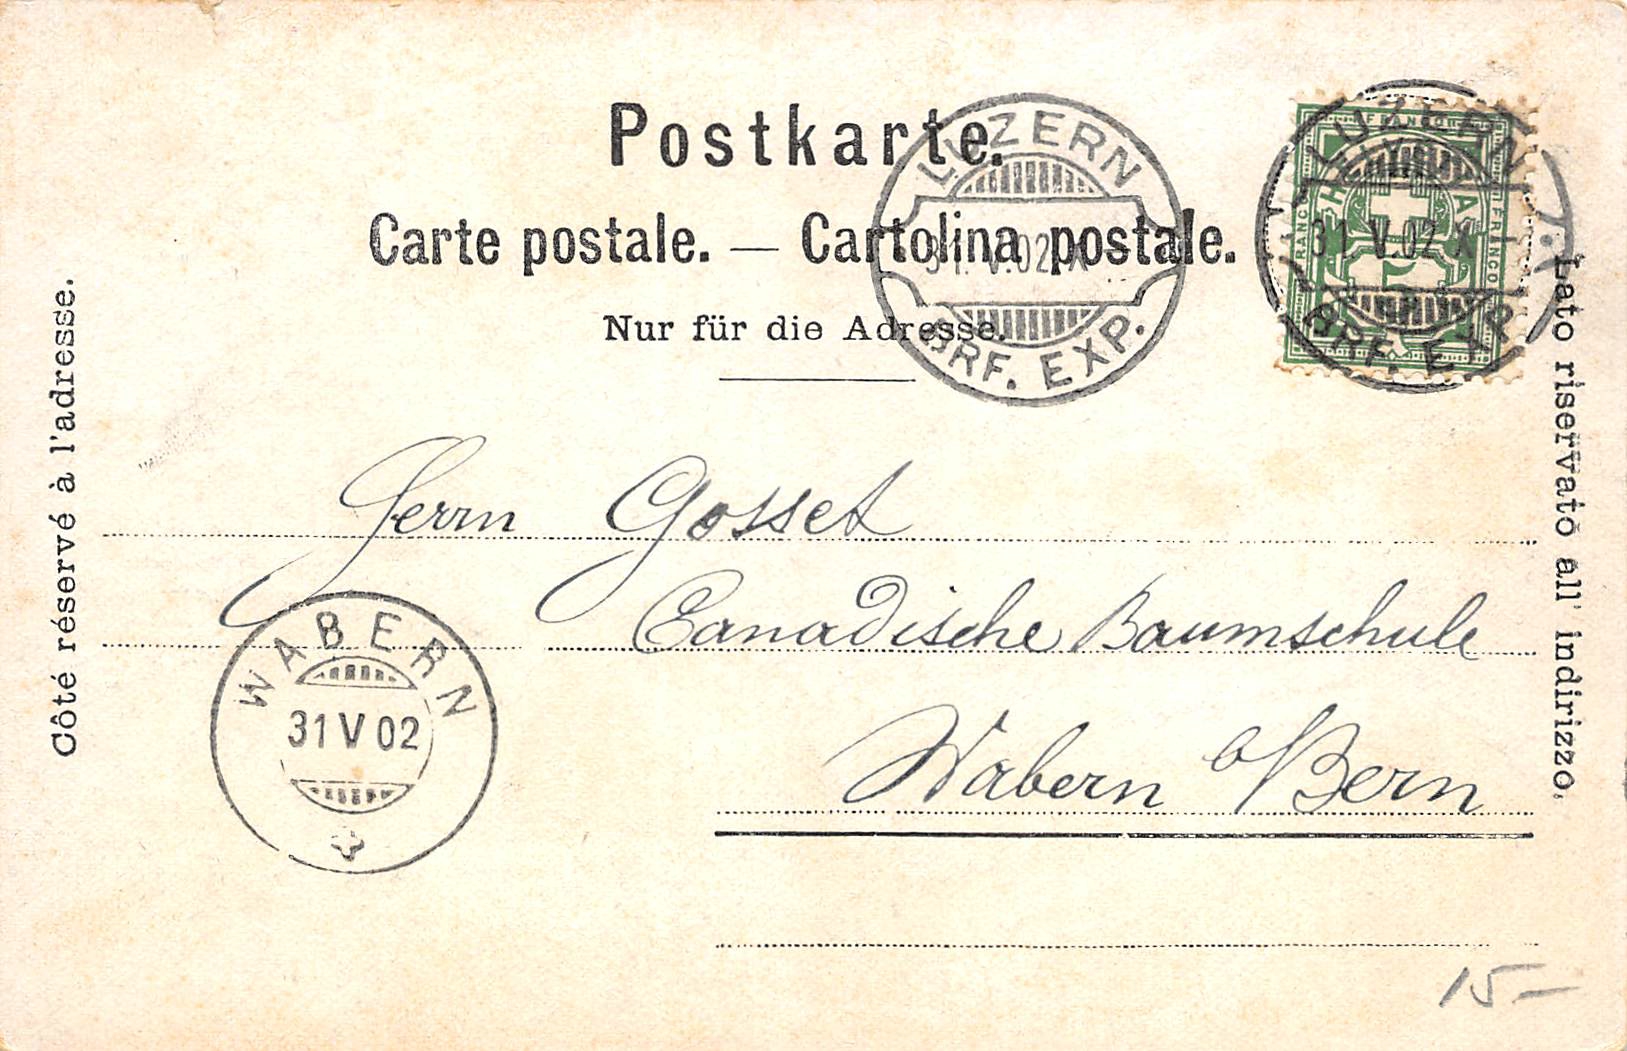 Postkarte.
Carte postale. — Cartolina postale.
Nur für die Adresse.
Côté réservé à l'adresse.
Lato riservato all' indirizzo.
LUZERN
31.V.02.X
BRF. EXP.
FRANCO
FRANCO
FRANCO
HELVETIA
5
LUZERN
31.V.02.X
BRF. EXP.
Herrn Gosset
Canadische Baumschule
Wabern b/Bern
WABERN
31 V 02
15–